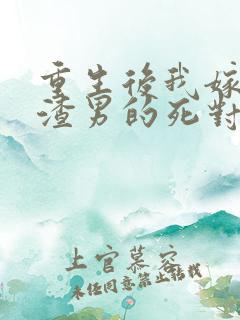 重生後我嫁
渣男的死對
上官慕容
未經同意禁止轉載